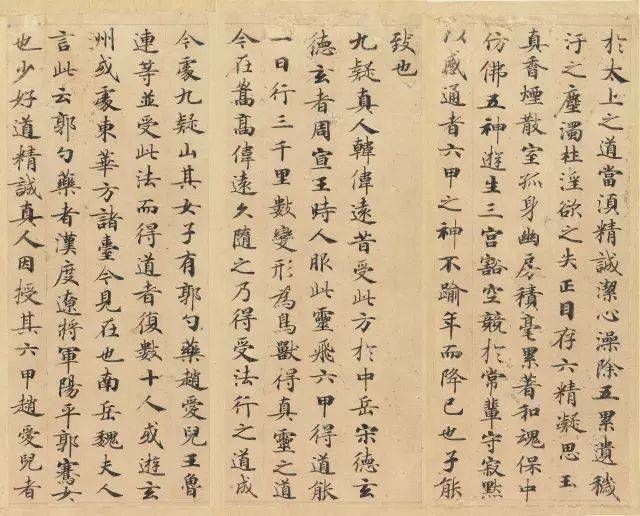 於太上之道當湏精誠潔心澡除五累遺穢
汙之塵濁杜淫欲之失正目存六精凝思玉
真香煙散室孤身幽房積毫累著和魂保中
仿佛五神遊生三宮豁空競於常輩守寂默
以感通者六甲之神不踰年而降已也子能
致也
九疑真人韓偉遠昔受此方於中岳宋德玄
德玄者周宣王時人服此靈飛六甲得道能
一日行三千里數變形為鳥獸得真靈之道
今在嵩高偉遠久隨之乃得受法行之道成
今處九疑山其女子有郭勺藥趙愛兒王魯
連等並受此法而得道者復數十人或遊玄
州或處東華方諸臺今見在也南岳魏夫人
言此云郭勺藥者漢度遼將軍陽平郭騫女
也少好道精誠真人因授其六甲趙愛兒者